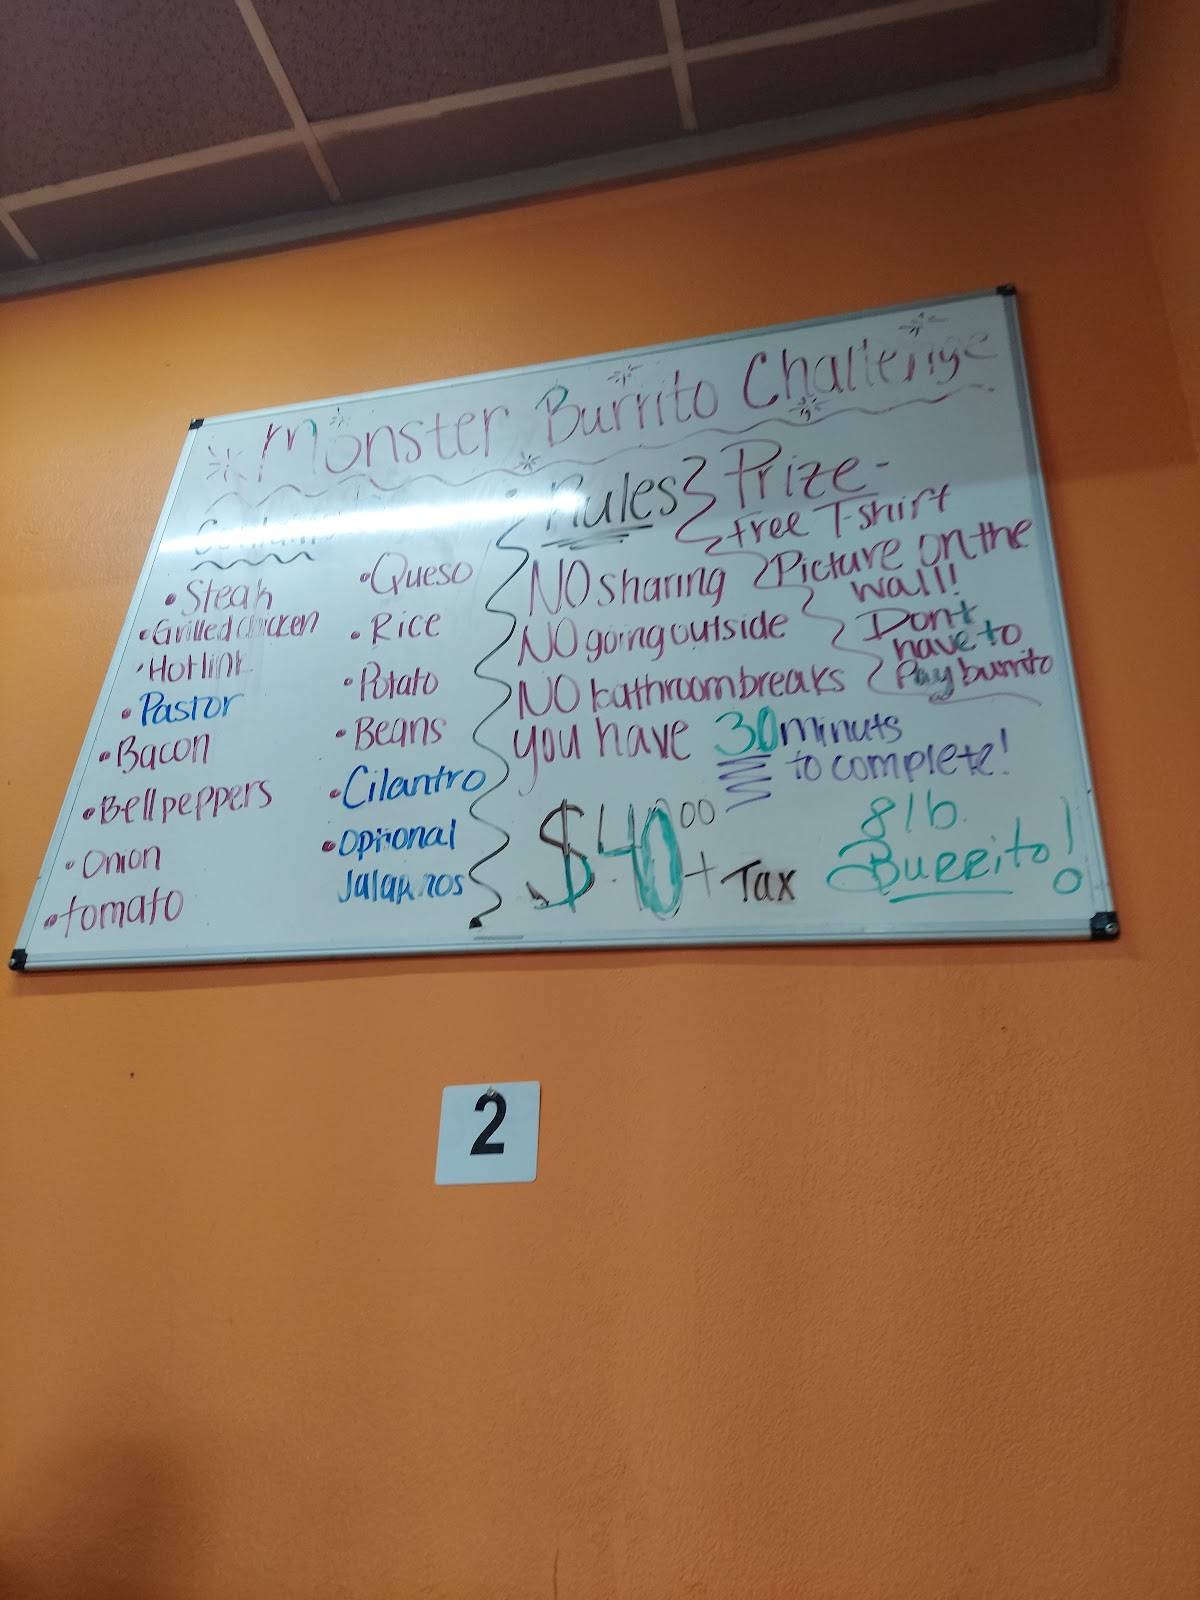 Monster Burrito Challenge
• Steak
• Grilled chicken
• Hotlink
• Pastor
• Bacon
• Bellpeppers
• Onion
• tomato
• Queso
• Rice
• Potato
• Beans
• Cilantro
• Optional
Jalapenos
Rules
NO sharing
NO going outside
NO bathroom breaks
you have 30 minuts
to complete!
Prize -
free T-shirt
Picture on the
wall!
Don't
have to
Pay burrito
$40.00 + Tax
8lb.
Burrito!
2